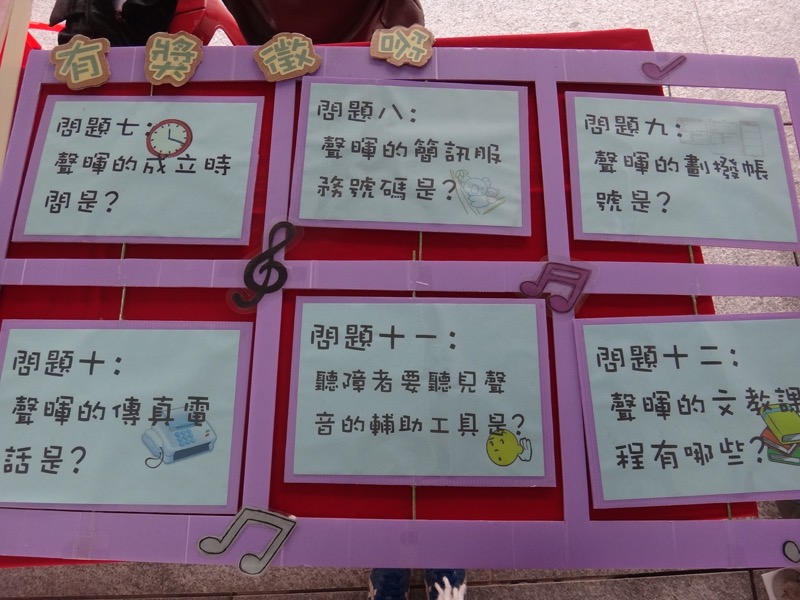 有獎徵答
問題七:
聲暉的成立時
間是?
問題八:
聲暉的簡訊服
務號碼是?
問題九:
聲暉的劃撥帳
號是?
問題十:
聲暉的傳真電
話是?
問題十一:
聽障者要聽見聲
音的輔助工具是?
問題十二:
聲暉的文教課
程有哪些?